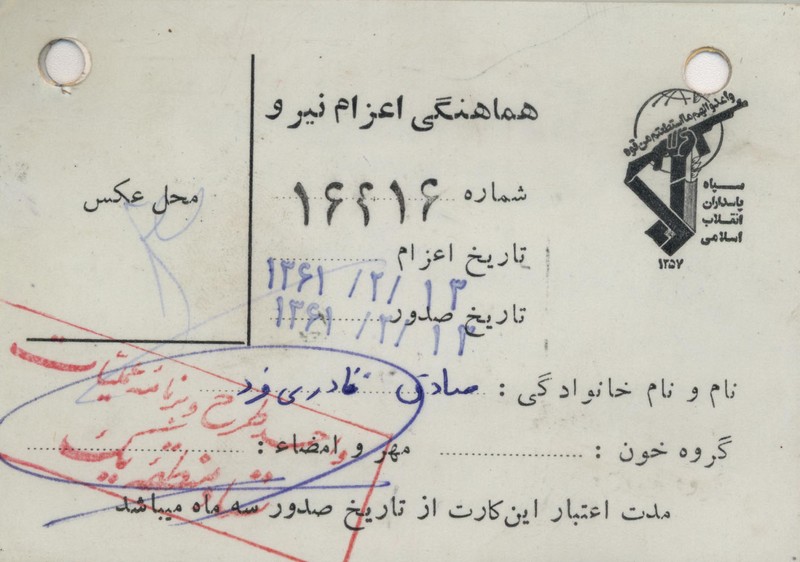 هماهنگی اعزام نیرو
واعدوالهم مااستطعتم من قوه
سپاه
پاسداران
انقلاب
اسلامی
۱۳۵۷
محل عکس
شماره ۱۶۶۱۶
تاریخ اعزام ۱۳۶۱/۲/۱۳
تاریخ صدور ۱۳۶۱/۲/۱۳
نام و نام خانوادگی : صادق قادری فرد
گروه خون :
مهر و امضاء :
واحد طرح و برنامه عملیات
مدت اعتبار این‌کارت از تاریخ صدور سه ماه میباشد